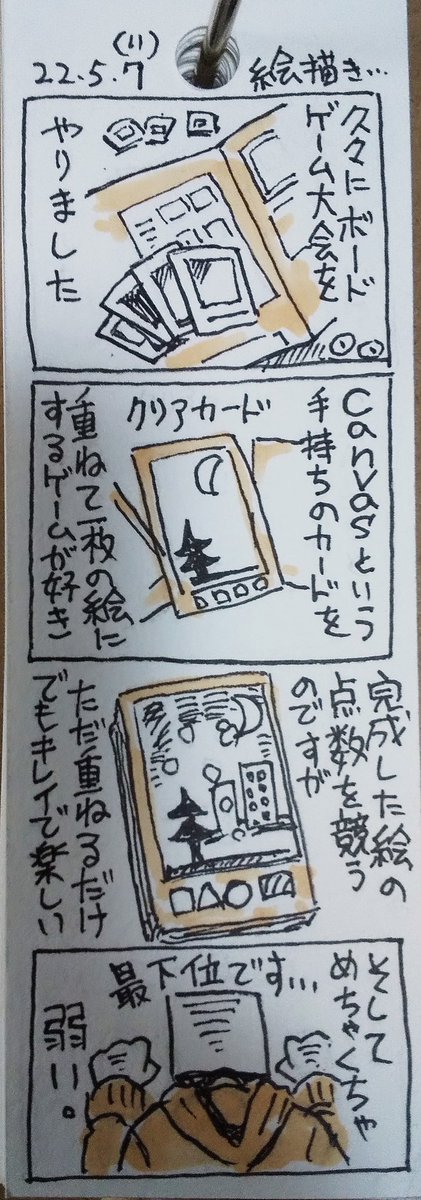 (11)
22.5.7
絵描き…
久々にボード
ゲーム大会を
やりました
Canvasという
手持ちのカードを
クリアカード
重ねて一枚の絵に
するゲームが好き
完成した絵の
点数を競う
のですが
ただ重ねるだけ
でもキレイで楽しい
そして
めちゃくちゃ
最下位です…
弱い。